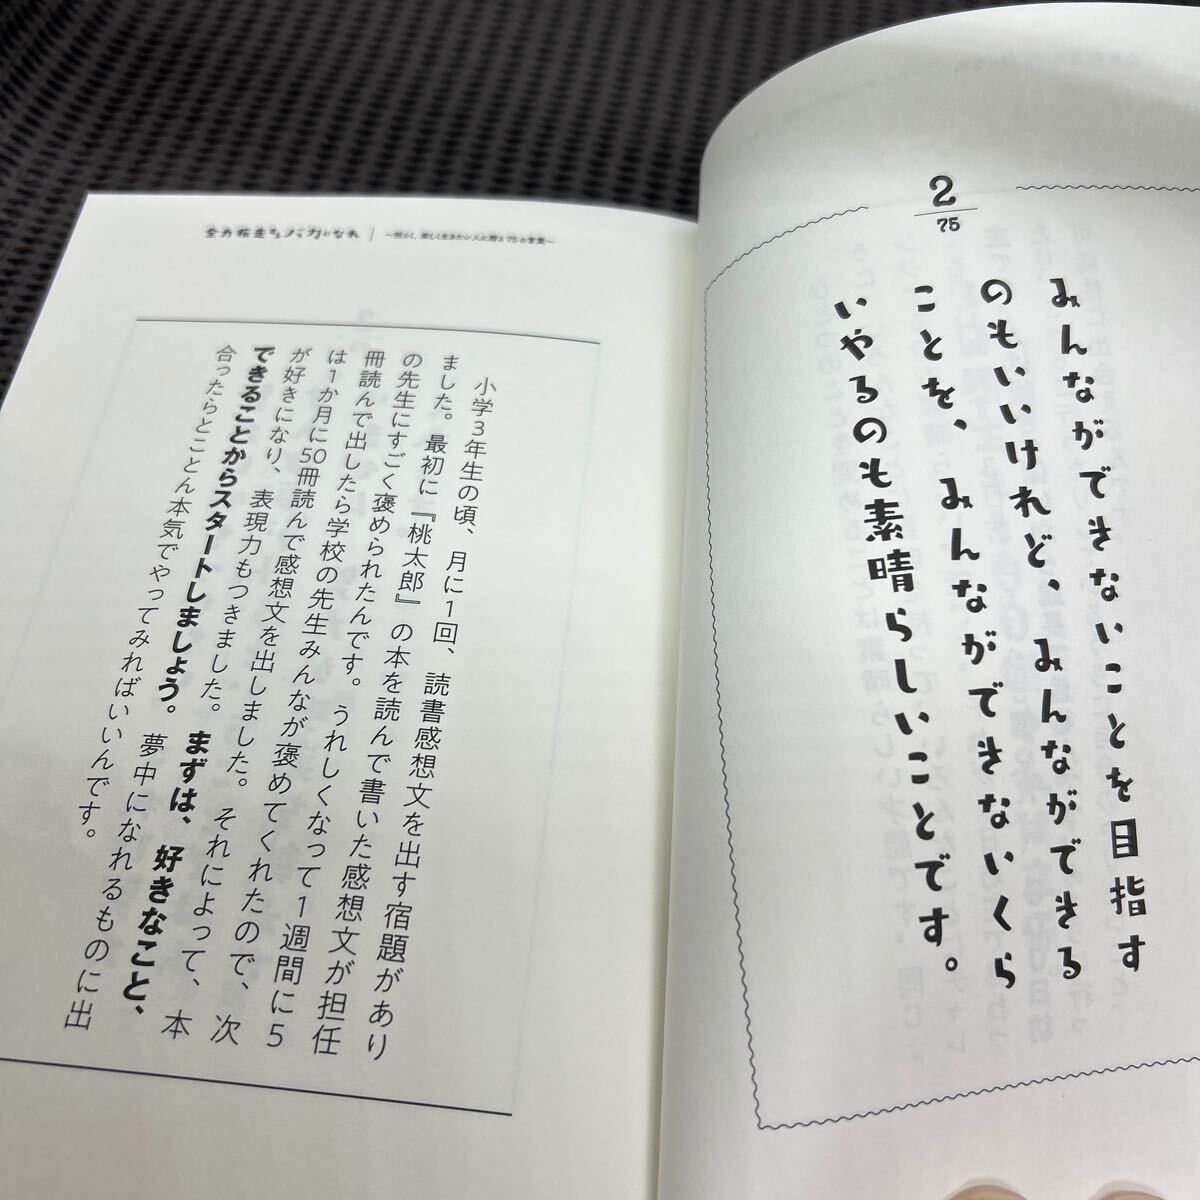 2
75
みんなができないことを目指す
のもいいけれど、みんなができる
ことを、みんなができないくら
いやるのも素晴らしいことです。
全力疾走するバカになれ
小学3年生の頃、月に1回、読書感想文を出す宿題があり
ました。最初に『桃太郎』の本を読んで書いた感想文が担任
の先生にすごく褒められたんです。うれしくなって1週間に5
冊読んで出したら学校の先生みんなが褒めてくれたので、次
は1か月に50冊読んで感想文を出しました。それによって、本
が好きになり、表現力もつきました。まずは、好きなこと、
できることからスタートしましょう。夢中になれるものに出
合ったらとことん本気でやってみればいいんです。